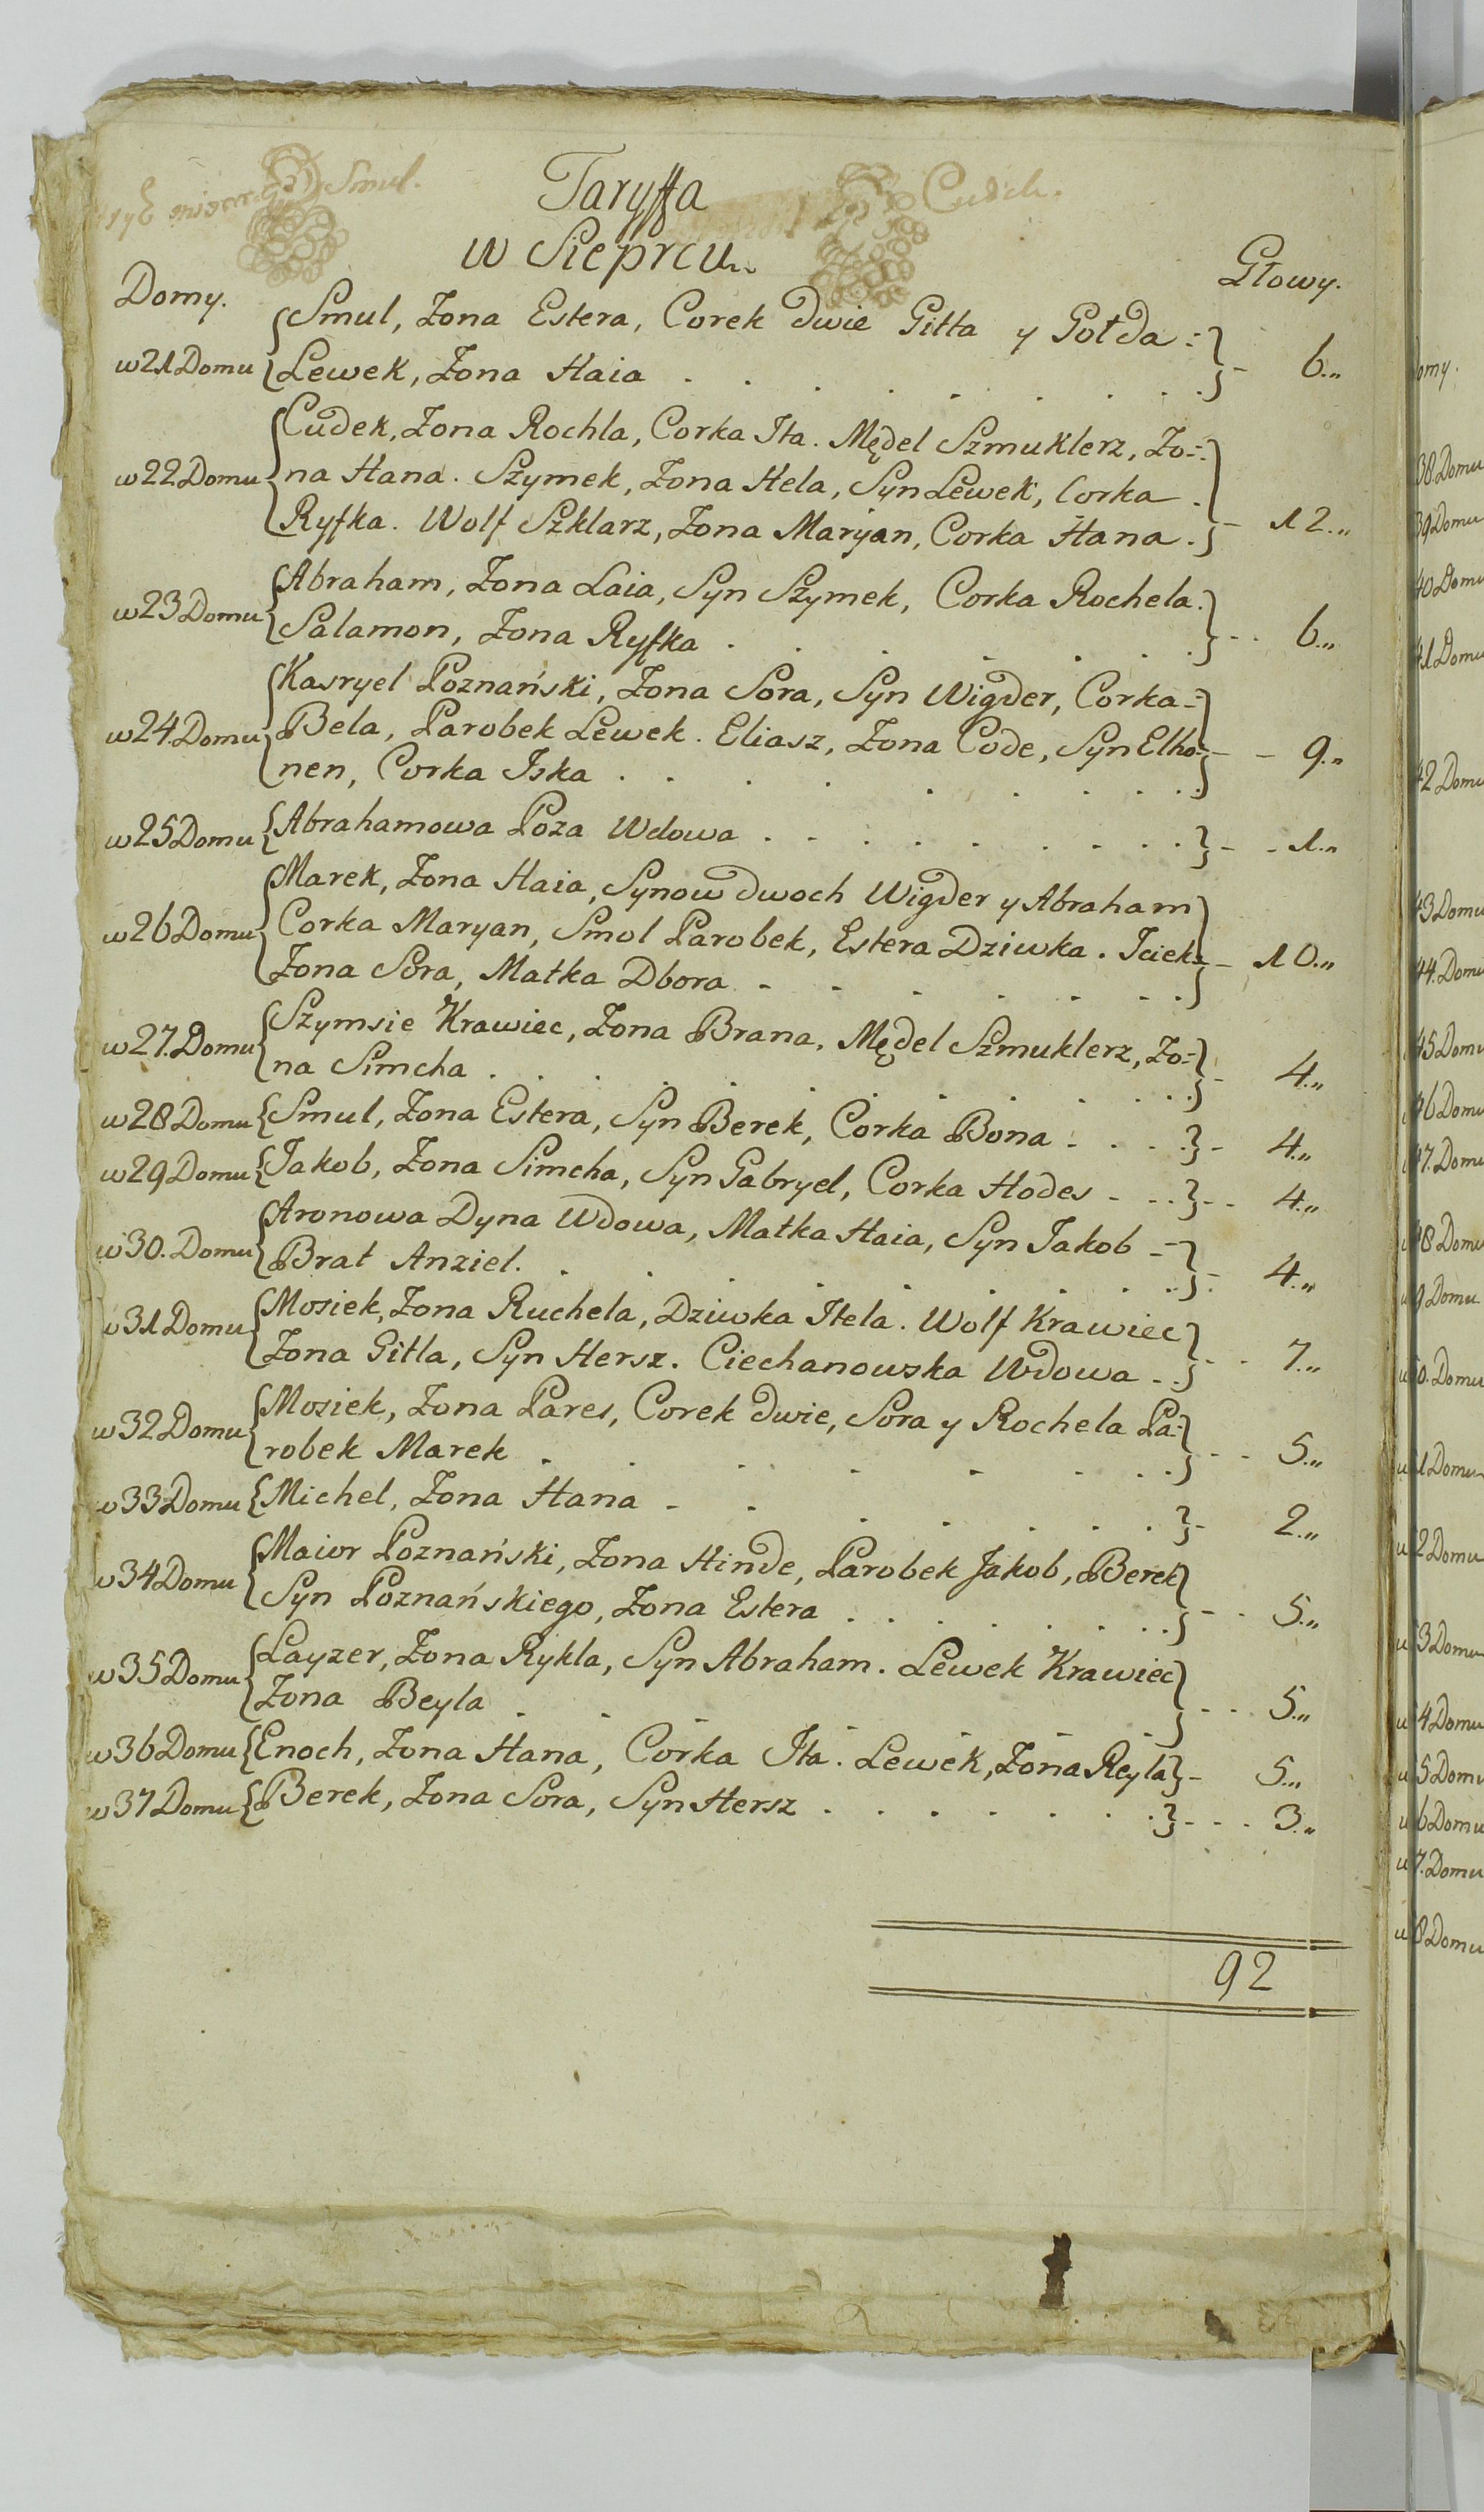 Smul.
Cudek.
Taryffa
w Sieprcu..
Domy.
Głowy.
Smul, Zona Estera, Corek dwie Gitta y Gołda =
w 21 Domu Lewek, Zona Haia - 6..
Cudek, Zona Rochla, Corka Ita. Mędel Szmuklerz, Zo=
w 22 Domu na Hana. Szymek, Zona Hela, Syn Lewek, Corka
Ryfka. Wolf Szklarz, Zona Maryan, Corka Hana. - 12..
w 23 Domu Abraham, Zona Laia, Syn Szymek, Corka Rochela.
Salamon, Zona Ryfka - - 6..
Kasryel Poznański, Zona Sora, Syn Wigder, Corka =
w 24. Domu Bela, Parobek Lewek. Eliasz, Zona Code, Syn Elho= - - 9..
nen, Corka Iska
w 25 Domu Abrahamowa Poza Wdowa - - 1..
Marek, Zona Haia, Synow dwoch Wigder y Abraham
w 26 Domu Corka Maryan, Smol Parobek, Estera Dziwka. Iciek= - 10..
Zona Sora, Matka Dbora
w 27. Domu Szymsie Krawiec, Zona Brana. Mędel Szmuklerz, Zo=
na Simcha - 4..
w 28 Domu Smul, Zona Estera, Syn Berek, Corka Bona - 4..
w 29 Domu Jakob, Zona Simcha, Syn Gabryel, Corka Hodes - - 4..
w 30. Domu Aronowa Dyna Wdowa, Matka Haia, Syn Jakob =
Brat Anziel. - 4..
w 31 Domu Mosiek, Zona Ruchela, Dziwka Itela. Wolf Krawiec
Zona Gitla, Syn Hersz. Ciechanowska Wdowa - - 7..
w 32 Domu Mosiek, Zona Pares, Corek dwie, Sora y Rochela Pa=
robek Marek - - 5..
w 33 Domu Michel, Zona Hana - 2..
w 34 Domu Maior Poznański, Zona Hinde, Parobek Jakob, Berek
Syn Poznańskiego, Zona Estera - - 5..
w 35 Domu Layzer, Zona Rykla, Syn Abraham. Lewek Krawiec
Zona Beyla - - - 5..
w 36 Domu Enoch, Zona Hana, Corka Ita. Lewek, Zona Reyla - 5..
w 37 Domu Berek, Zona Sora, Syn Hersz - - - 3..
92
omy.
38. Domu
39 Domu
40 Domu
41 Domu
42 Domu
43 Domu
44. Domu
45 Domu
46 Domu
47. Domu
48 Domu
9 Domu
0. Domu
1 Domu
2 Domu
3 Domu
4 Domu
5 Domu
6 Domu
7. Domu
8 Domu